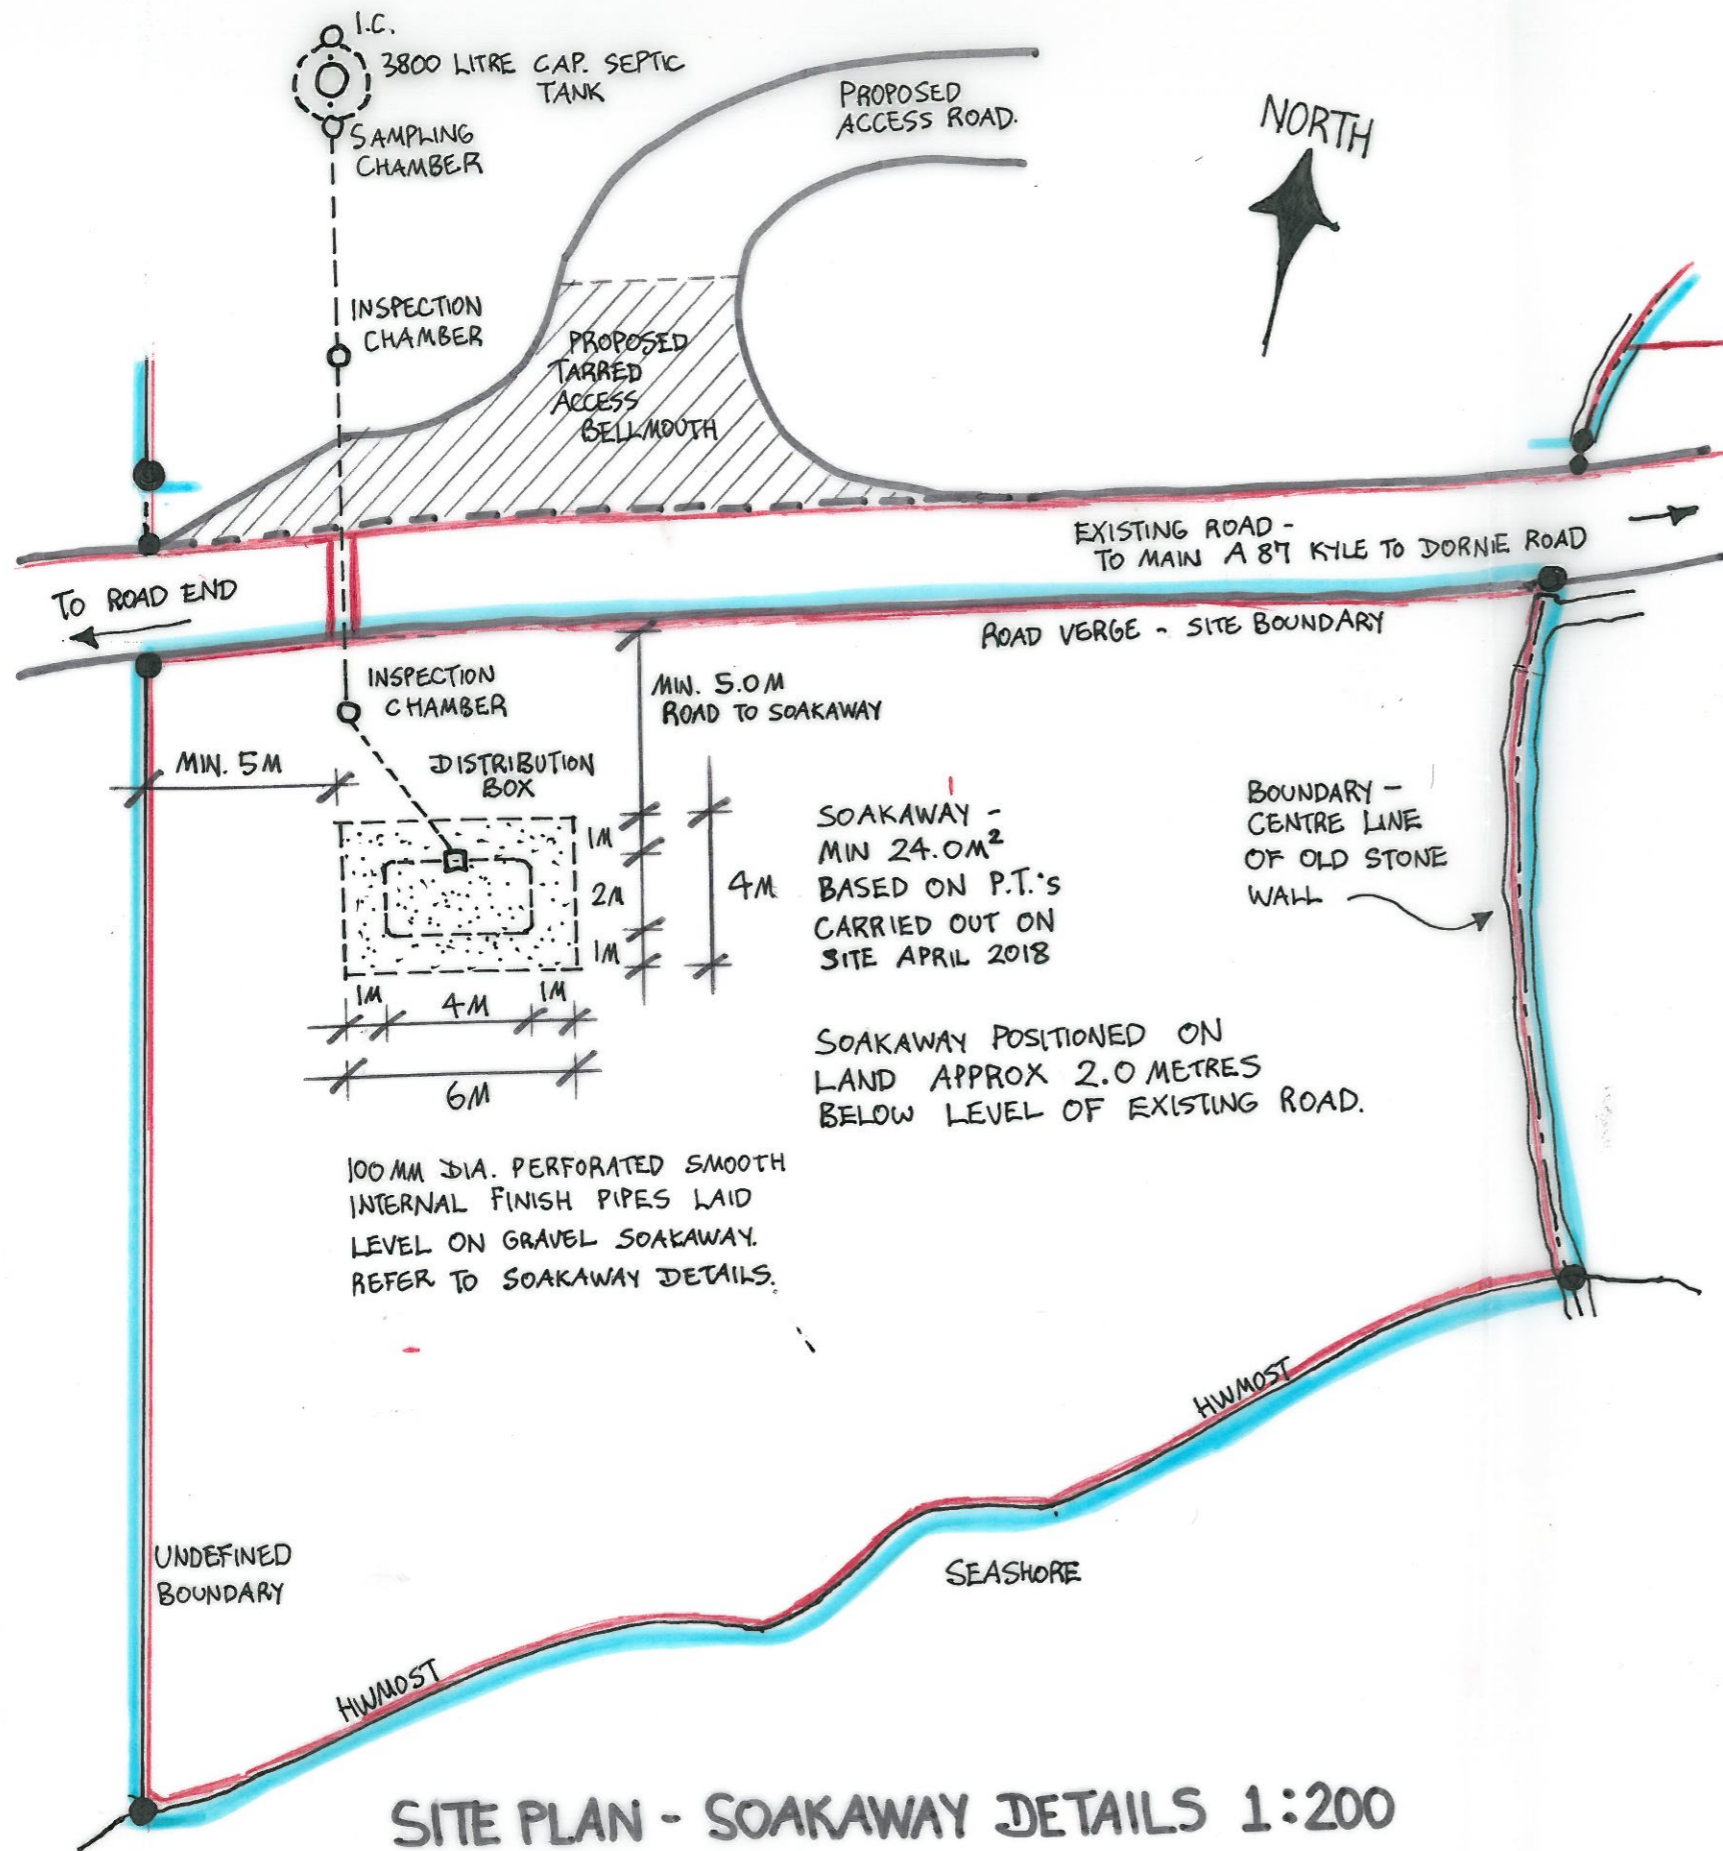 I.C.
3800 LITRE CAP. SEPTIC
TANK
SAMPLING
CHAMBER
PROPOSED
ACCESS ROAD.
NORTH
INSPECTION
CHAMBER
PROPOSED
TARRED
ACCESS
BELLMOUTH
EXISTING ROAD -
TO MAIN A 87 KYLE TO DORNIE ROAD
TO ROAD END
ROAD VERGE - SITE BOUNDARY
INSPECTION
CHAMBER
MIN. 5.0M
ROAD TO SOAKAWAY
MIN. 5M
DISTRIBUTION
BOX
1M
2M
1M
4M
SOAKAWAY -
MIN 24.0M²
BASED ON P.T.'S
CARRIED OUT ON
SITE APRIL 2018
BOUNDARY -
CENTRE LINE
OF OLD STONE
WALL
1M
4M
1M
6M
SOAKAWAY POSITIONED ON
LAND APPROX 2.0 METRES
BELOW LEVEL OF EXISTING ROAD.
100 MM DIA. PERFORATED SMOOTH
INTERNAL FINISH PIPES LAID
LEVEL ON GRAVEL SOAKAWAY.
REFER TO SOAKAWAY DETAILS.
HWMOST
UNDEFINED
BOUNDARY
SEASHORE
HWMOST
SITE PLAN - SOAKAWAY DETAILS 1:200